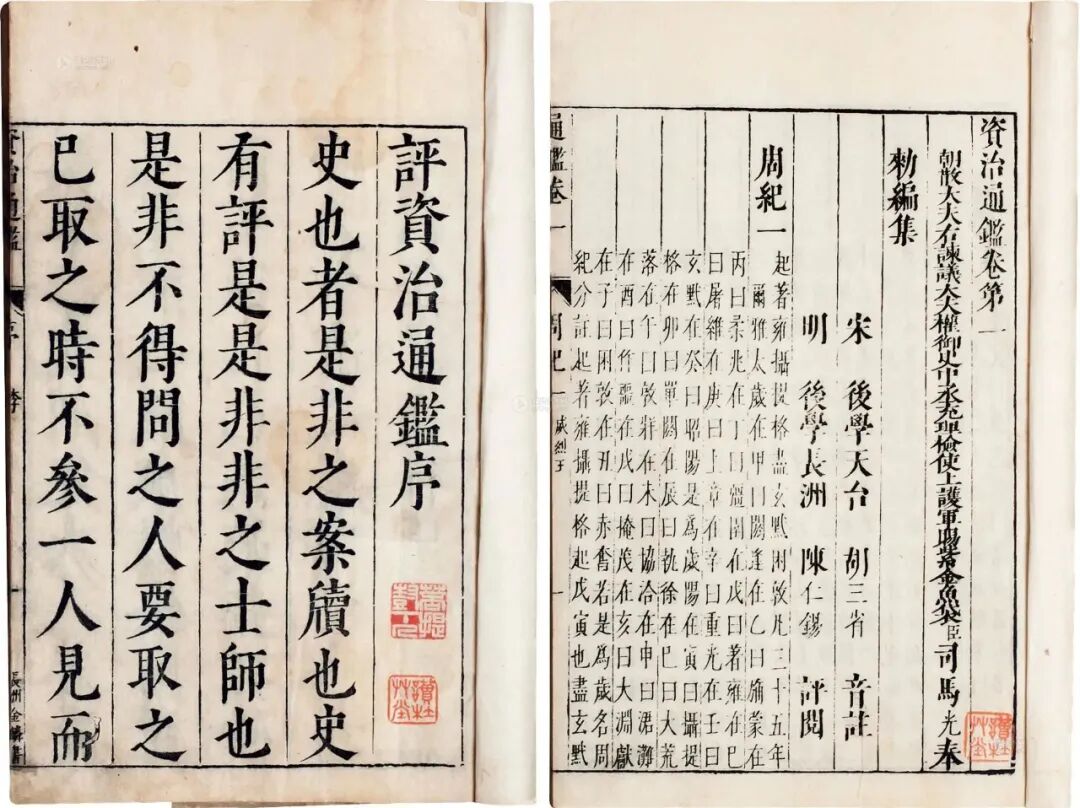 評資治通鑑序
史也者是非之案牘也史
有評是是非非之士師也
是非不得問之人要取之
已取之時不參一人見而
資治通鑑 序
讀杜艸堂
資治通鑑卷第一
朝散大夫右諫議大夫權御史中丞充理檢使上護軍賜紫金魚袋臣司馬光奉
勑編集
宋 後學天台 胡三省 音註
明 後學長洲 陳仁錫 評閱
周紀一
起著雍攝提格盡玄黓困敦凡三十五年
爾雅太歲在甲曰閼逢在乙曰旃蒙在
丙曰柔兆在丁曰彊圉在戊曰著雍在巳
曰屠維在庚曰上章在辛曰重光在壬曰
玄黓在癸曰昭陽是爲歲陽在寅曰攝提
格在卯曰單閼在辰曰執徐在巳曰大荒
落在午曰敦牂在未曰協洽在申曰涒灘
在酉曰作噩在戌曰掩茂在亥曰大淵獻
在子曰困敦在丑曰赤奮若是爲歲名周
紀分註起著雍攝提格起戊寅也盡玄黓
通鑑卷一 周紀一 威烈王 一
讀杜艸堂